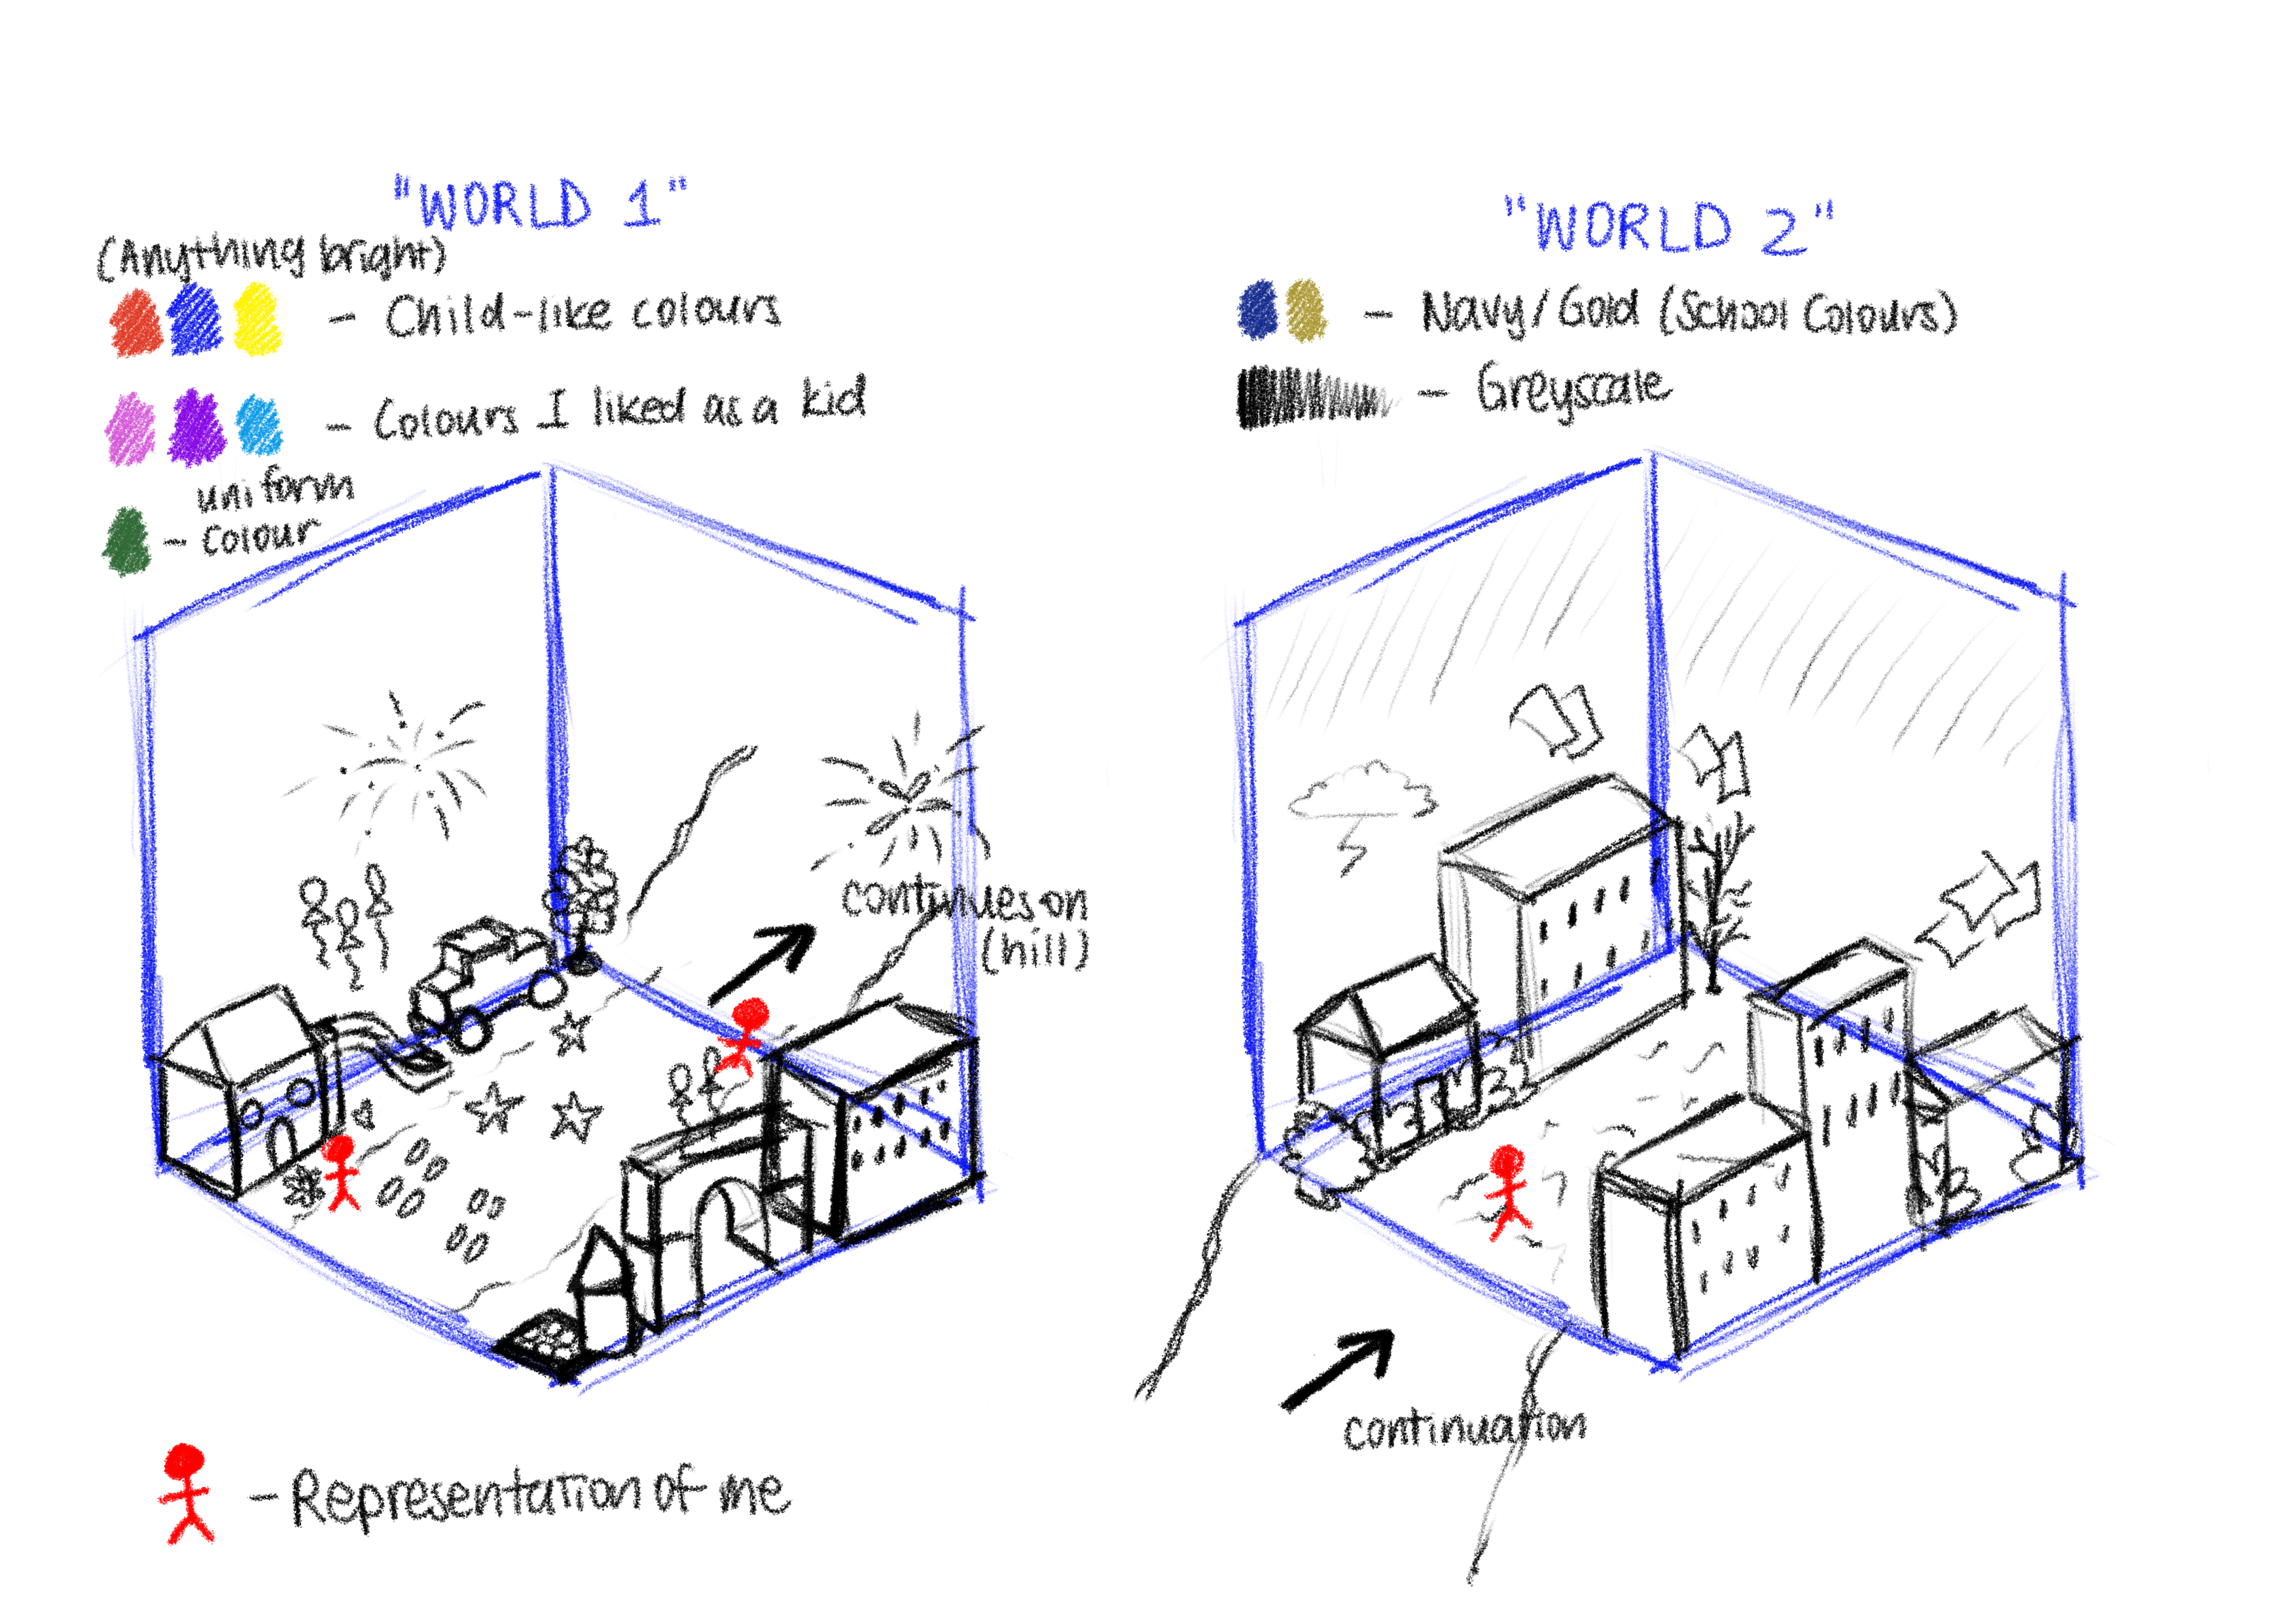 "WORLD 1"
(Anything bright)
- Child-like colours
- Colours I liked as a kid
uniform
- colour
continues on
(hill)
- Representation of me
"WORLD 2"
- Navy/Gold (School Colours)
- Greyscale
continuation